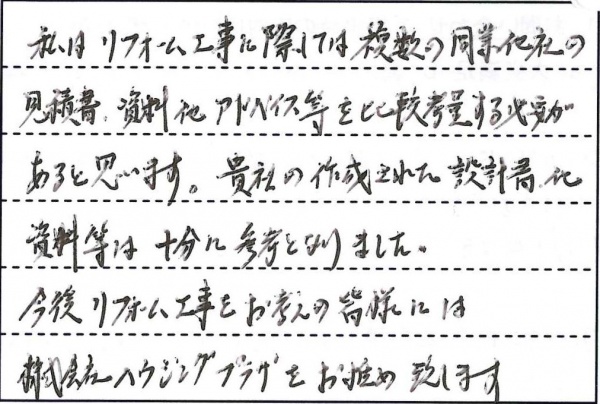 私は リフォーム工事に際しては 複数の同業他社の
見積書、資料他 アドバイス等を比較考量する必要が
あると思います。貴社の作成された設計書、他
資料等は 十分に参考となりました。
今後 リフォーム工事をお考えの皆様には
株式会社ハウジングプラザをお推め致します